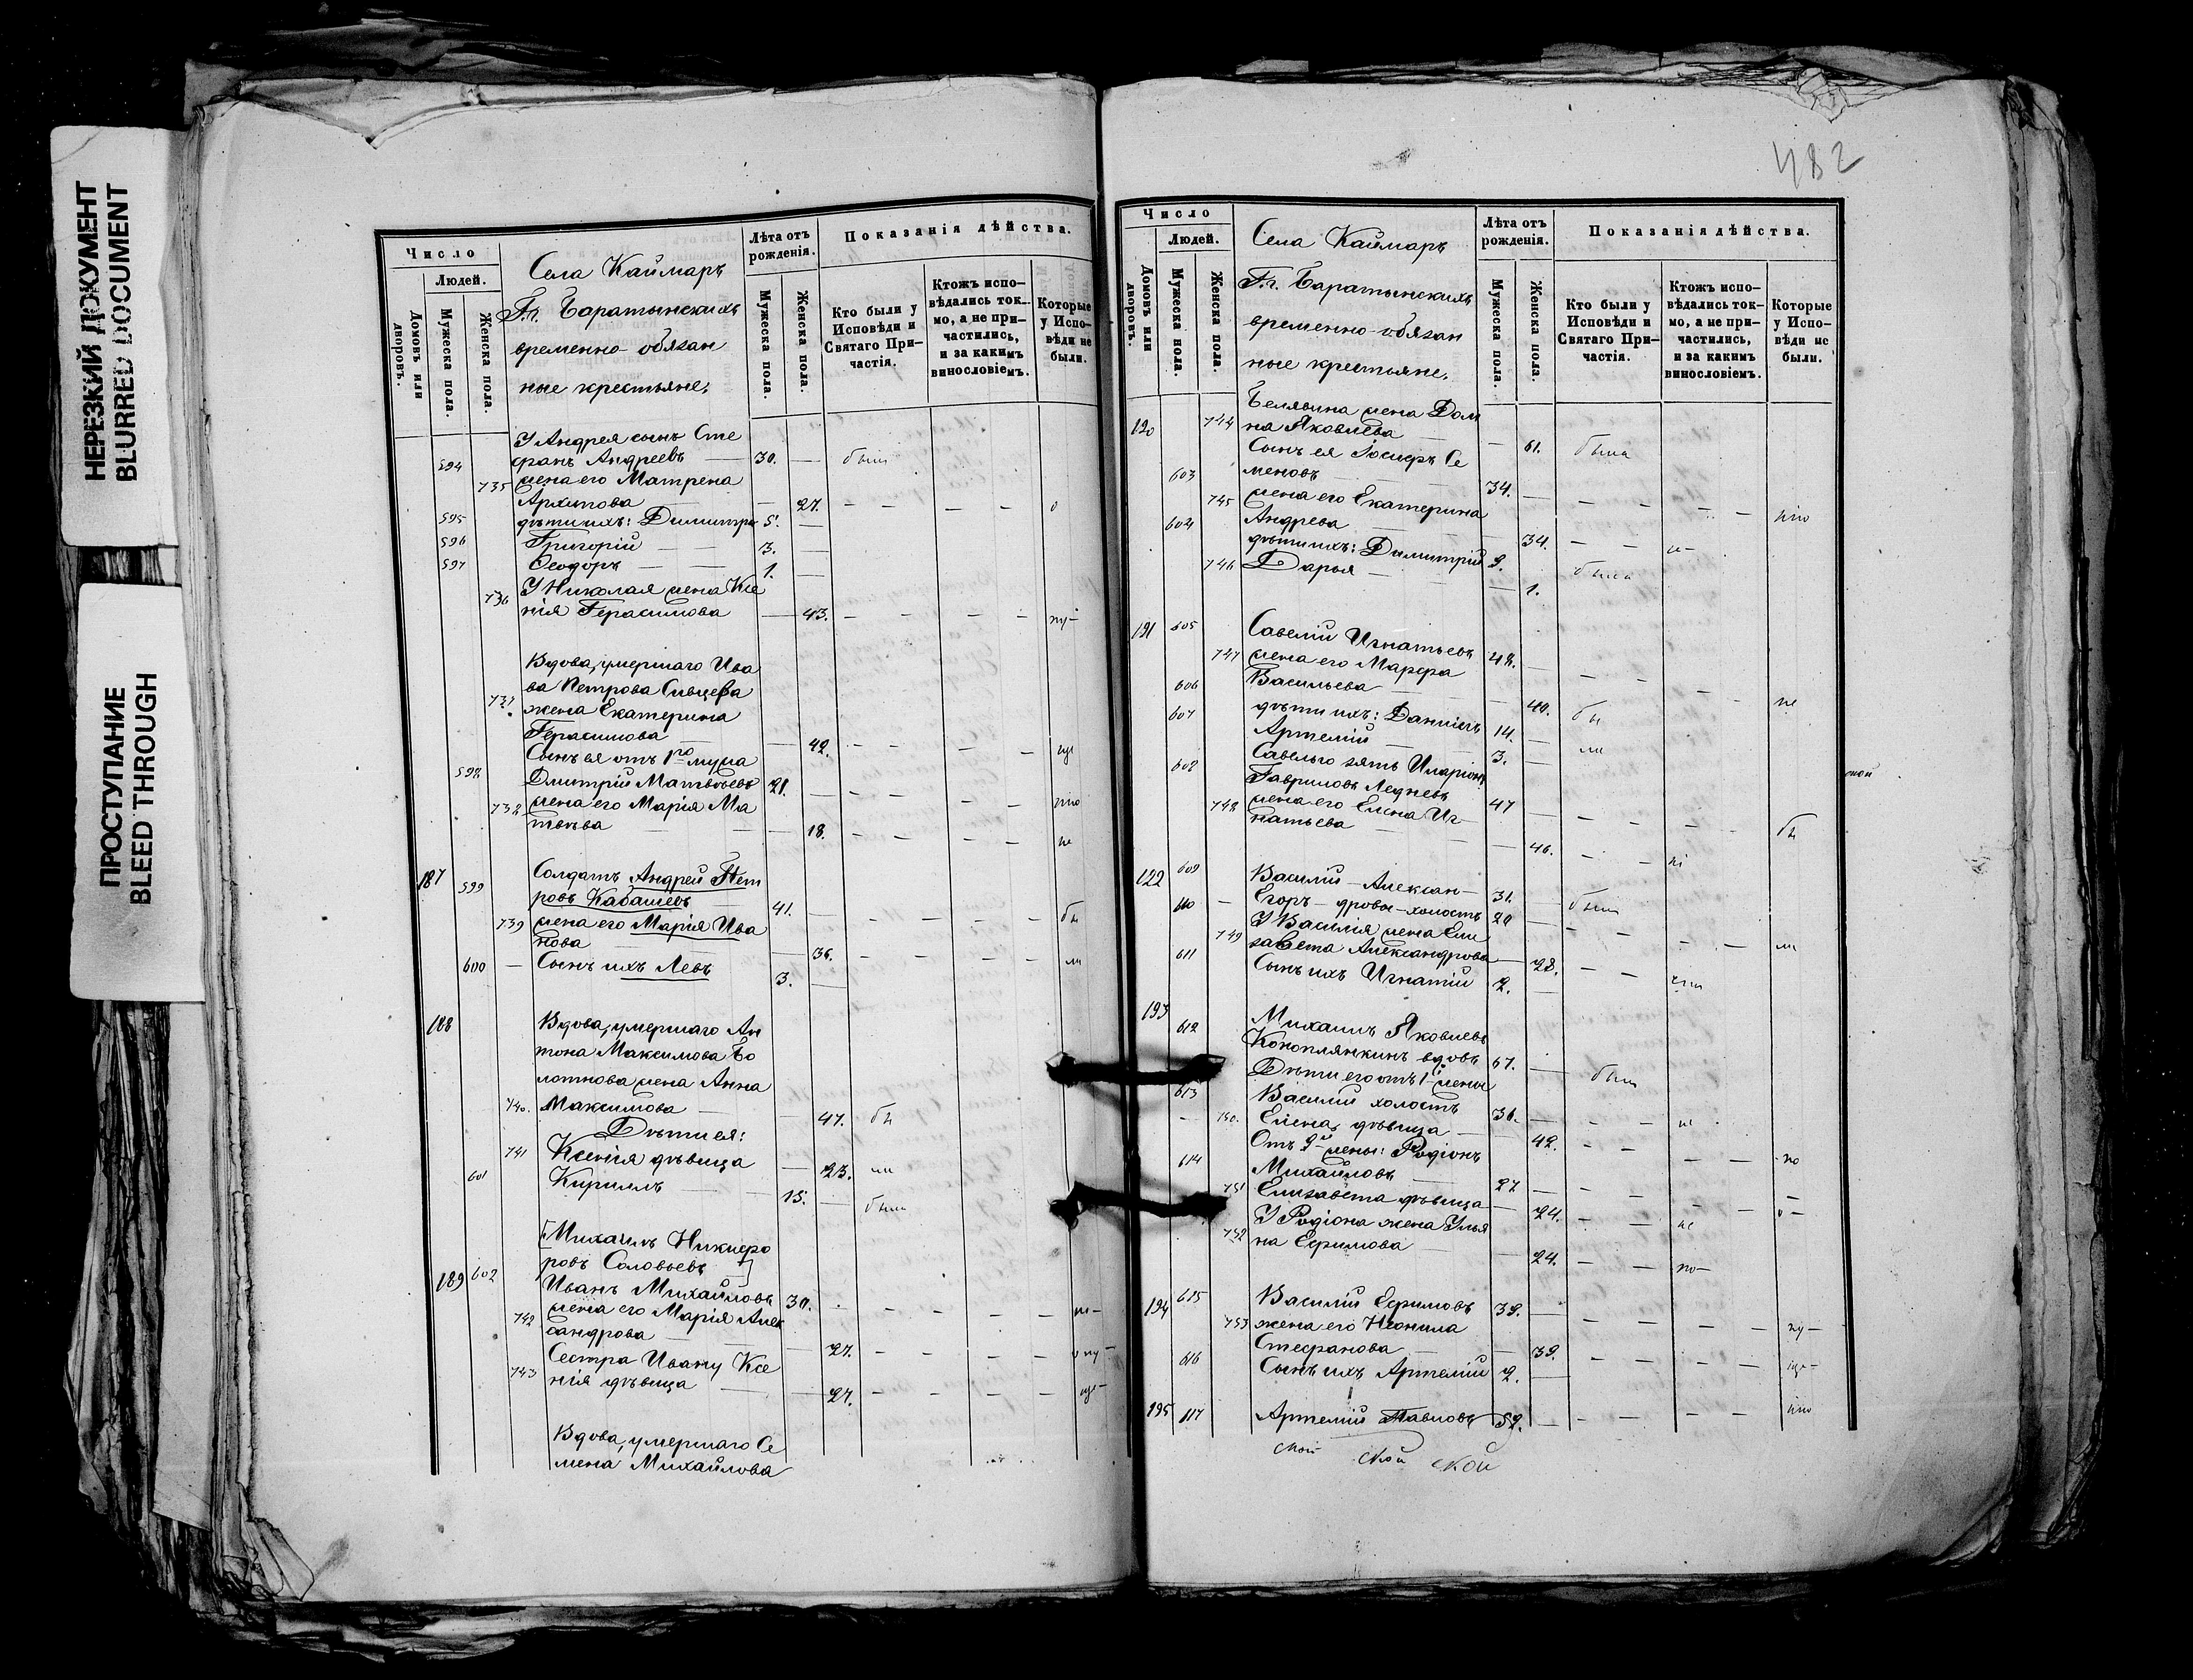 НЕРЕЗКИЙ ДОКУМЕНТ
BLURRED DOCUMENT
ПРОСТУПАНИЕ
BLEED THROUGH
Число
Людей.
Домовъ или дворовъ.
Мужеска пола.
Женска пола.
Села Каймаръ
Г.г. Баратынскихъ
временно-обязан
ные крестьяне.
Лѣта отъ рожденія.
Мужеска пола.
Женска пола.
Показанія дѣйства.
Кто были у Исповѣди и Святаго Причастія.
Ктожъ исповѣдались токмо, а не причастились, и за какимъ винословіемъ.
Которые у Исповѣди не были.
У Андрея сынъ Сте
594 фанъ Андреевъ — 30. — были
735 жена его Матрена
Архипова — — 27. — — — —
595 дѣти ихъ: Димитрій 5. —
596 Григорій — — 3. —
597 Ѳеодоръ — — 1. —
736 У Николая жена Ксе
нія Герасимова — 43. — — — —
Вдова, умершаго Ива
ва Петрова Сивцева
737 жена Екатерина
Герасимова — — 42. — — — —
Сынъ ея отъ 1го мужа
598 Дмитрій Матвѣевъ 21. — — — —
738 жена его Марія Ма
твѣева — — — 18. — — — — не
187 599 Солдатъ Андрей Пет
ровъ Кабашевъ — 41. — — — — — бы
739 жена его Марія Ива
нова — — 36. — — — — ли
600 — Сынъ ихъ Левъ 3. —
188 Вдова, умершаго Ан
тона Максимова Бо
лотнова жена Анна
740. Максимова — — 47. бы
Дѣти ея:
741 Ксенія дѣвица — 23. ли
601 Кириллъ — — 15. — были
[Михаилъ Никифо
ровъ Соловьевъ —]
189 602 Иванъ Михайловъ 30. — — — —
742 жена его Марія Алек
сандрова — — 27. — — — —
Сестра Ивану Ксе
743 нія дѣвица — — 27. — — — —
Вдова, умершаго Се
мена Михайлова
482
Число
Людей.
Домовъ или дворовъ.
Мужеска пола.
Женска пола.
Села Каймаръ
Г.г. Баратынскихъ
временно-обязан
ные крестьяне.
Лѣта отъ рожденія.
Мужеска пола.
Женска пола.
Показанія дѣйства.
Кто были у Исповѣди и Святаго Причастія.
Ктожъ исповѣдались токмо, а не причастились, и за какимъ винословіемъ.
Которые у Исповѣди не были.
Белявина жена Дом
190 744 на Яковлева — — 61. была
Сынъ ея Іосифъ Се
603 меновъ 34. — — — — —
745 жена его Екатерина
Андрева — 34. — —
604 дѣти ихъ: Димитрій 9. были
746 Дарья — — 1.
191 605 Савелій Игнатьевъ 48. — — — — — не
747 жена его Марѳа
Васильева — — 40. бы
606 дѣти ихъ: Даніилъ 14. — ли
607 Артемій — 3. —
Савелью зять Иларіонъ
608 Гавриловъ Ледневъ 47 — — — — — бы
748 жена его Елена Иг
натьева — — 46. — —
192 609 Василій — Алексан— 31. — были
610 — Егоръ — дровы — холостъ 20 — — — — — ли
У Василія жена Ели
749 завета Александрова — 28. — —
611 Сынъ ихъ Игнатій 2. —
193 612 Михаилъ Яковлевъ
Коноплянкинъ вдовъ 67. — были
Дѣти его отъ 1й жены
613 Василій холостъ 36. — — — не
— 750. Елена, дѣвица — — 42. — — — — по
Отъ 2й жены: Родіонъ
614 Михайловъ — 27 — — — — —
751 Елизавета дѣвица — 24. — — не
У Родіона жена Улья
752 на Ефимова — — 24. — — по—
194 615 Василій Ефимовъ 39. — — — — —
753 жена его Неонила
Стефанова — — 39. — — — —
616 Сынъ ихъ Артемій 2. —
195 617 Артемій Павловъ 52. — — — — —
ской ской ской